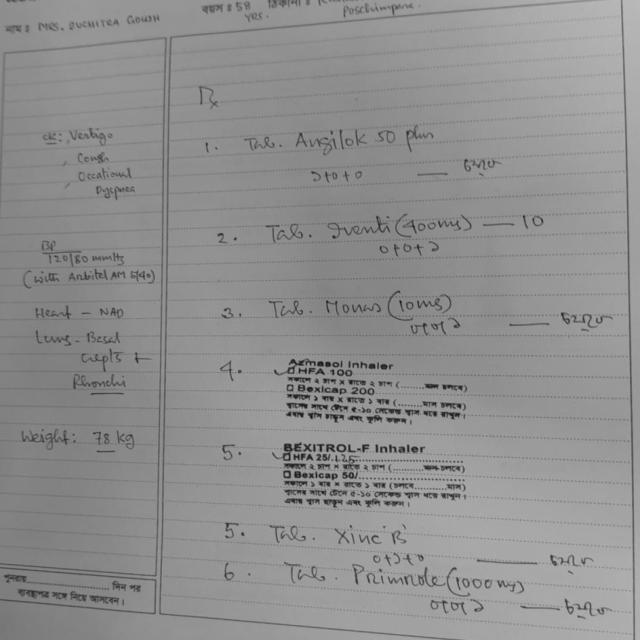 নাম ঃ MRS. SUCHITRA GOUSH বয়স ঃ 58 YRS. ঠিকানা ঃ
Poschimpara.
Rx
cc: Vertigo
, Cough
, Occational
Dyspnea
BP
120/80 mmHg
(with Arbitel AM 5/40)
Heart - NAD
Lung - Basal
crepts +
Rhonchi
Weight: 78 kg
পুনরায় .................... দিন পর
ব্যবস্থাপত্র সঙ্গে নিয়ে আসবেন।
1. Tab. Angilok 50 plus
১+০+০ — চলবে
2. Tab. Iventi (400mg) — 10
০+০+১
3. Tab. Monas (10mg)
০+০+১ — চলবে
4. Azmasol Inhaler
HFA 100
সকালে ২ চাপ × রাতে ২ চাপ (.........মাস চলবে)
Bexicap 200
সকালে ১ বার × রাতে ১ বার (.........মাস চলবে)
শ্বাসের সাথে টেনে ৫-১০ সেকেন্ড শ্বাস ধরে রাখুন।
এবার শ্বাস ছাড়ুন এবং কুলি করুন।
5. BEXITROL-F Inhaler
HFA 25/125
সকালে ২ চাপ × রাতে ২ চাপ (.........মাস চলবে)
Bexicap 50/
সকালে ১ বার × রাতে ১ বার (চলবে.........মাস)
শ্বাসের সাথে টেনে ৫-১০ সেকেন্ড শ্বাস ধরে রাখুন।
এবার শ্বাস ছাড়ুন এবং কুলি করুন।
5. Tab. Xinc 'B'
০+১+০ — চলবে
6. Tab. Primrole (1000mg)
০+০+১ — চলবে